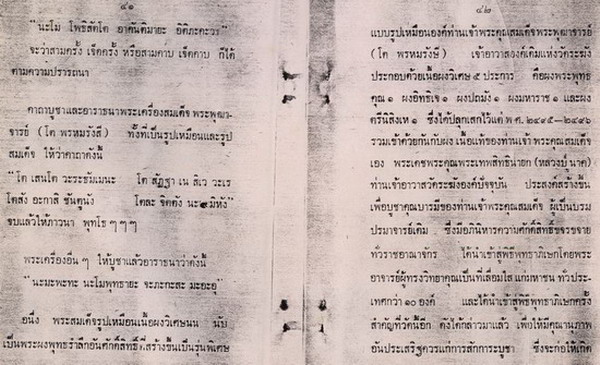 ๔๑
"นะโม โพธิสัตโต อาคันติมายะ อิติภะคะวะ"
จะว่าสามครั้ง เจ็ดครั้ง หรือสามคาบ เจ็ดคาบ ก็ได้
ตามความปรารถนา
คาถาบูชาและอาราธนาพระเครื่องสมเด็จ พระพุฒา-
จารย์ (โต พรหมรังสี) ทั้งที่เป็นรูปเหมือนและรูป
สมเด็จ ให้ว่าคาถาดังนี้
"โต เสนโต วะระธัมเมนะ โต สัฏฐา เน สิเว วะเร
โตสัง อะกาสิ ชันตูนัง โตละ จิตตัง นะมามิหัง"
จบแล้วให้ภาวนา พุทโธ ๆ ๆ ๆ
พระเครื่องอื่น ๆ ให้บูชาแล้วอาราธนาว่าดังนี้
"นะมะพะทะ นะโมพุทธายะ จะภะกะสะ มะอะอุ"
อนึ่ง พระสมเด็จรูปเหมือนเนื้อผงวิเศษนน นับ
เป็นพระผงพุทธรำลึกอันศักดิ์สิทธิ์ที่สร้างขึ้นเป็นรุ่นพิเศษ
๔๒
แบบรูปเหมือนองค์ท่านเจ้าพระคุณสมเด็จพระพุฒาจารย์
(โต พรหมรังษี) เจ้าอาวาสองค์เดิมแห่งวัดระฆัง
ประกอบด้วยเนื้อผงวิเศษ ๕ ประการ คือผงพระพุทธ
คุณ ๑ ผงอิทธิเจ ๑ ผงปถมัง ๑ ผงมหาราช ๑ และผง
ตรีนิสิงเห ๑ ซึ่งได้ปลุกเสกไว้แต่ พ.ศ. ๒๔๙๕-๒๔๙๖
รวมเข้าด้วยกันกับผง เนื้อแท้ของท่านเจ้าพระคุณสมเด็จ
เอง พระเดชพระคุณพระเทพสิทธินายก (หลวงปู่ นาค)
ท่านเจ้าอาวาสวัดระฆังองค์ปัจจุบัน ประสงค์สร้างขึ้น
เพื่อบูชาคุณบารมีของท่านเจ้าพระคุณสมเด็จ ผู้เป็นบรม
ปรมาจารย์เดิม ซึ่งมีอภินิหารความศักดิ์สิทธิ์ขจรขจาย
ทั่วราชอาณาจักร ได้นำเข้าสู่พิธีพุทธาภิเษกโดยพระ
อาจารย์ผู้ทรงวิทยาคุณเป็นที่เลื่อมใส แก่มหาชน ทั่วประ-
เทศกว่า ๑๐ องค์ และได้นำเข้าสู่พิธีพุทธาภิเษกครั้ง
สำคัญที่วัดนี้อีก ดังได้กล่าวมาแล้ว เพื่อให้มีคุณานุภาพ
อันประเสริฐควรแก่การสักการะบูชา ซึ่งจะก่อให้เกิด